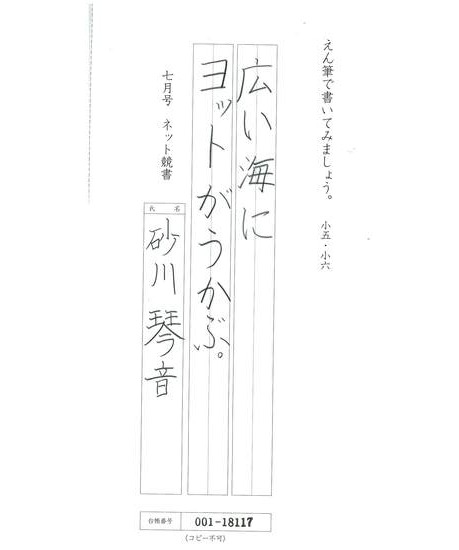 えん筆で書いてみましょう。 小五・小六
広い海に
ヨットがうかぶ。
七月号 ネット競書
氏名
砂川琴音
台帳番号 001-18117
(コピー不可)